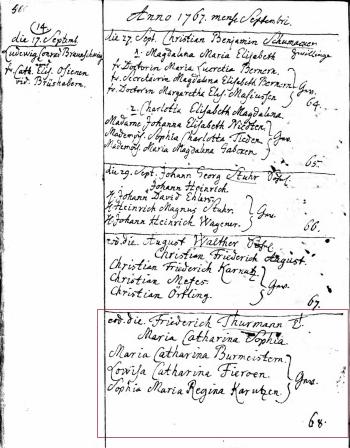 Anno 1767. mense Septembri.
14.
die 17. Septemb.
Ludewig Conrad Braunschweig
fr. Cath. Elis. Ofienen
vid. Büshabern.
die 27. Sept. Christian Benjamin Schumacher
1. Magdalena Maria Elisabeth
fr. Doctorin Maria Lucretia Bernern.
fr. Secretärin Magdalena Elisabeth Bernern
fr. Doctorin Margaretha Elis. Masiussen
Gev.
64.
2. Charlotta Elisabeth Magdalena.
Madame Johanna Elisabeth Niedten.
Mademois. Sophia Charlotta Tieden.
Mademois. Maria Magdalena Fabezen.
Gev.
65.
die 29. Sept. Johann Georg Stuhr
Johann Heinrich.
H. Johann David Ehlers.
H. Heinrich Magnus Stuhr.
H. Johann Heinrich Wagener.
Gev.
66.
eod. die. August Walther
Christian Friederich August.
Christian Friederich Karnatz.
Christian Metes.
Christian Ortling.
Gev.
67.
eod. die. Friederich Thurmann
Maria Catharina Sophia
Maria Catharina Burmeistern.
Lowisa Catharina Fieroen.
Sophia Maria Regina Karutzen.
Gev.
68.